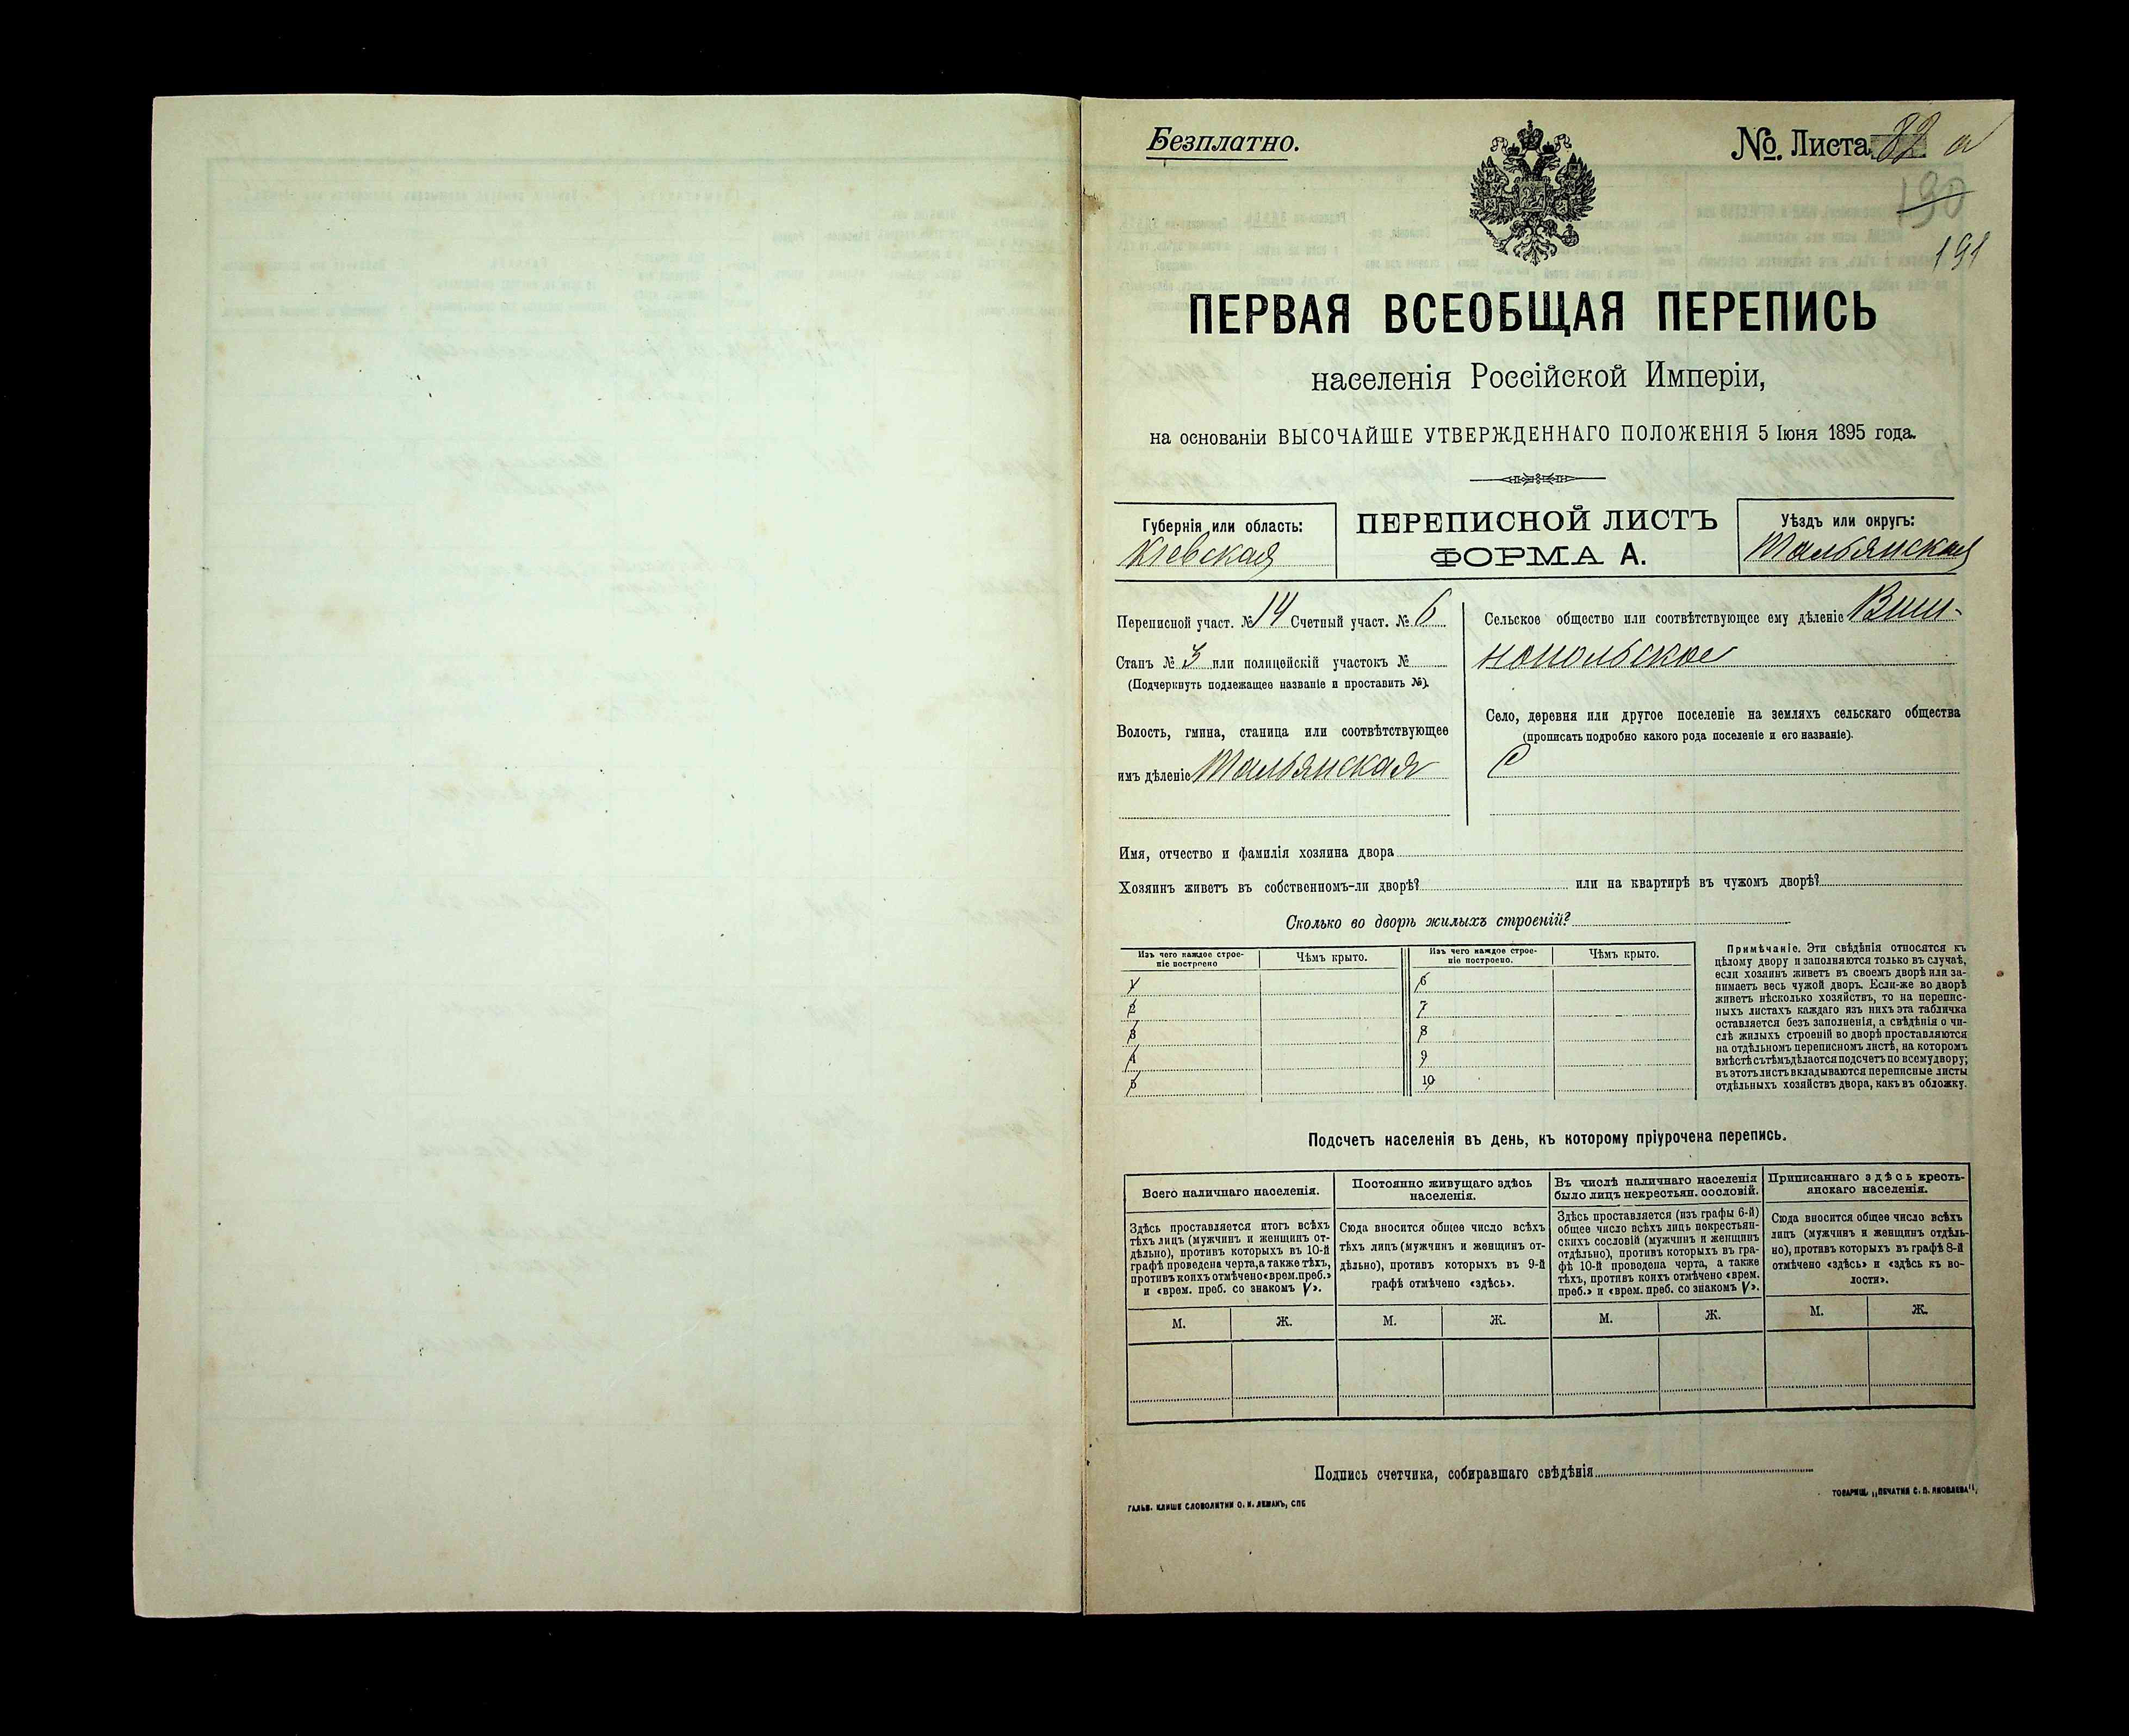 Безплатно.
№. Листа 82 а
190
191
ПЕРВАЯ ВСЕОБЩАЯ ПЕРЕПИСЬ
населенія Россійской Имперіи,
на основаніи ВЫСОЧАЙШЕ УТВЕРЖДЕННАГО ПОЛОЖЕНІЯ 5 Іюня 1895 года.
Губернія или область:
Кіевская
ПЕРЕПИСНОЙ ЛИСТЪ
ФОРМА А.
Уѣздъ или округъ:
Тальянская
Переписной участ. № 14 Счетный участ. № 6
Станъ № 3 или полицейскій участокъ №
(Подчеркнуть подлежащее названіе и проставить №).
Волость, гмина, станица или соотвѣтствующее
имъ дѣленіе Тальянская
Сельское общество или соотвѣтствующее ему дѣленіе Виш-
нопольское
Село, деревня или другое поселеніе на земляхъ сельскаго общества
(прописать подробно какого рода поселеніе и его названіе).
С
Имя, отчество и фамилія хозяина двора
Хозяинъ живетъ въ собственномъ-ли дворѣ? или на квартирѣ въ чужомъ дворѣ?
Сколько во дворѣ жилыхъ строеній?
Изъ чего каждое строе-
ніе построено
Чѣмъ крыто.
Изъ чего каждое строе-
ніе построено.
Чѣмъ крыто.
1
2
3
4
5
6
7
8
9
10
Примѣчаніе. Эти свѣдѣнія относятся къ
цѣлому двору и заполняются только въ случаѣ,
если хозяинъ живетъ въ своемъ дворѣ или за-
нимаетъ весь чужой дворъ. Если-же во дворѣ
живетъ нѣсколько хозяйствъ, то на перепис-
ныхъ листахъ каждаго изъ нихъ эта табличка
оставляется безъ заполненія, а свѣдѣнія о чи-
слѣ жилыхъ строеній во дворѣ проставляются
на отдѣльномъ переписномъ листѣ, на которомъ
вмѣстѣ съ тѣмъ дѣлается подсчетъ по всему двору;
въ этотъ листъ вкладываются переписные листы
отдѣльныхъ хозяйствъ двора, какъ въ обложку.
Подсчетъ населенія въ день, къ которому пріурочена перепись.
Всего наличнаго населенія.
Здѣсь проставляется итогъ всѣхъ
тѣхъ лицъ (мужчинъ и женщинъ от-
дѣльно), противъ которыхъ въ 10-й
графѣ проведена черта, а также тѣхъ,
противъ коихъ отмѣчено «врем. преб.»
и «врем. преб. со знакомъ V».
Постоянно живущаго здѣсь
населенія.
Сюда вносится общее число всѣхъ
тѣхъ лицъ (мужчинъ и женщинъ от-
дѣльно), противъ которыхъ въ 9-й
графѣ отмѣчено «здѣсь».
Въ числѣ наличнаго населенія
было лицъ некрестьян. сословій.
Здѣсь проставляется (изъ графы 6-й)
общее число всѣхъ лицъ некрестьян-
скихъ сословій (мужчинъ и женщинъ
отдѣльно), противъ которыхъ въ гра-
фѣ 10-й проведена черта, а также
тѣхъ, противъ коихъ отмѣчено «врем.
преб.» и «врем. преб. со знакомъ V».
Приписаннаго здѣсь кресть-
янскаго населенія.
Сюда вносится общее число всѣхъ
лицъ (мужчинъ и женщинъ отдѣль-
но), противъ которыхъ въ графѣ 8-й
отмѣчено «здѣсь» и «здѣсь къ во-
лости».
М. Ж. М. Ж. М. Ж. М. Ж.
Подпись счетчика, собиравшаго свѣдѣнія
ГАЛЬВ. КЛИШЕ СЛОВОЛИТНИ О. И. ЛЕМАНЪ, СПБ
ТОВАРИЩ. „ПЕЧАТНЯ С. П. ЯКОВЛЕВА",